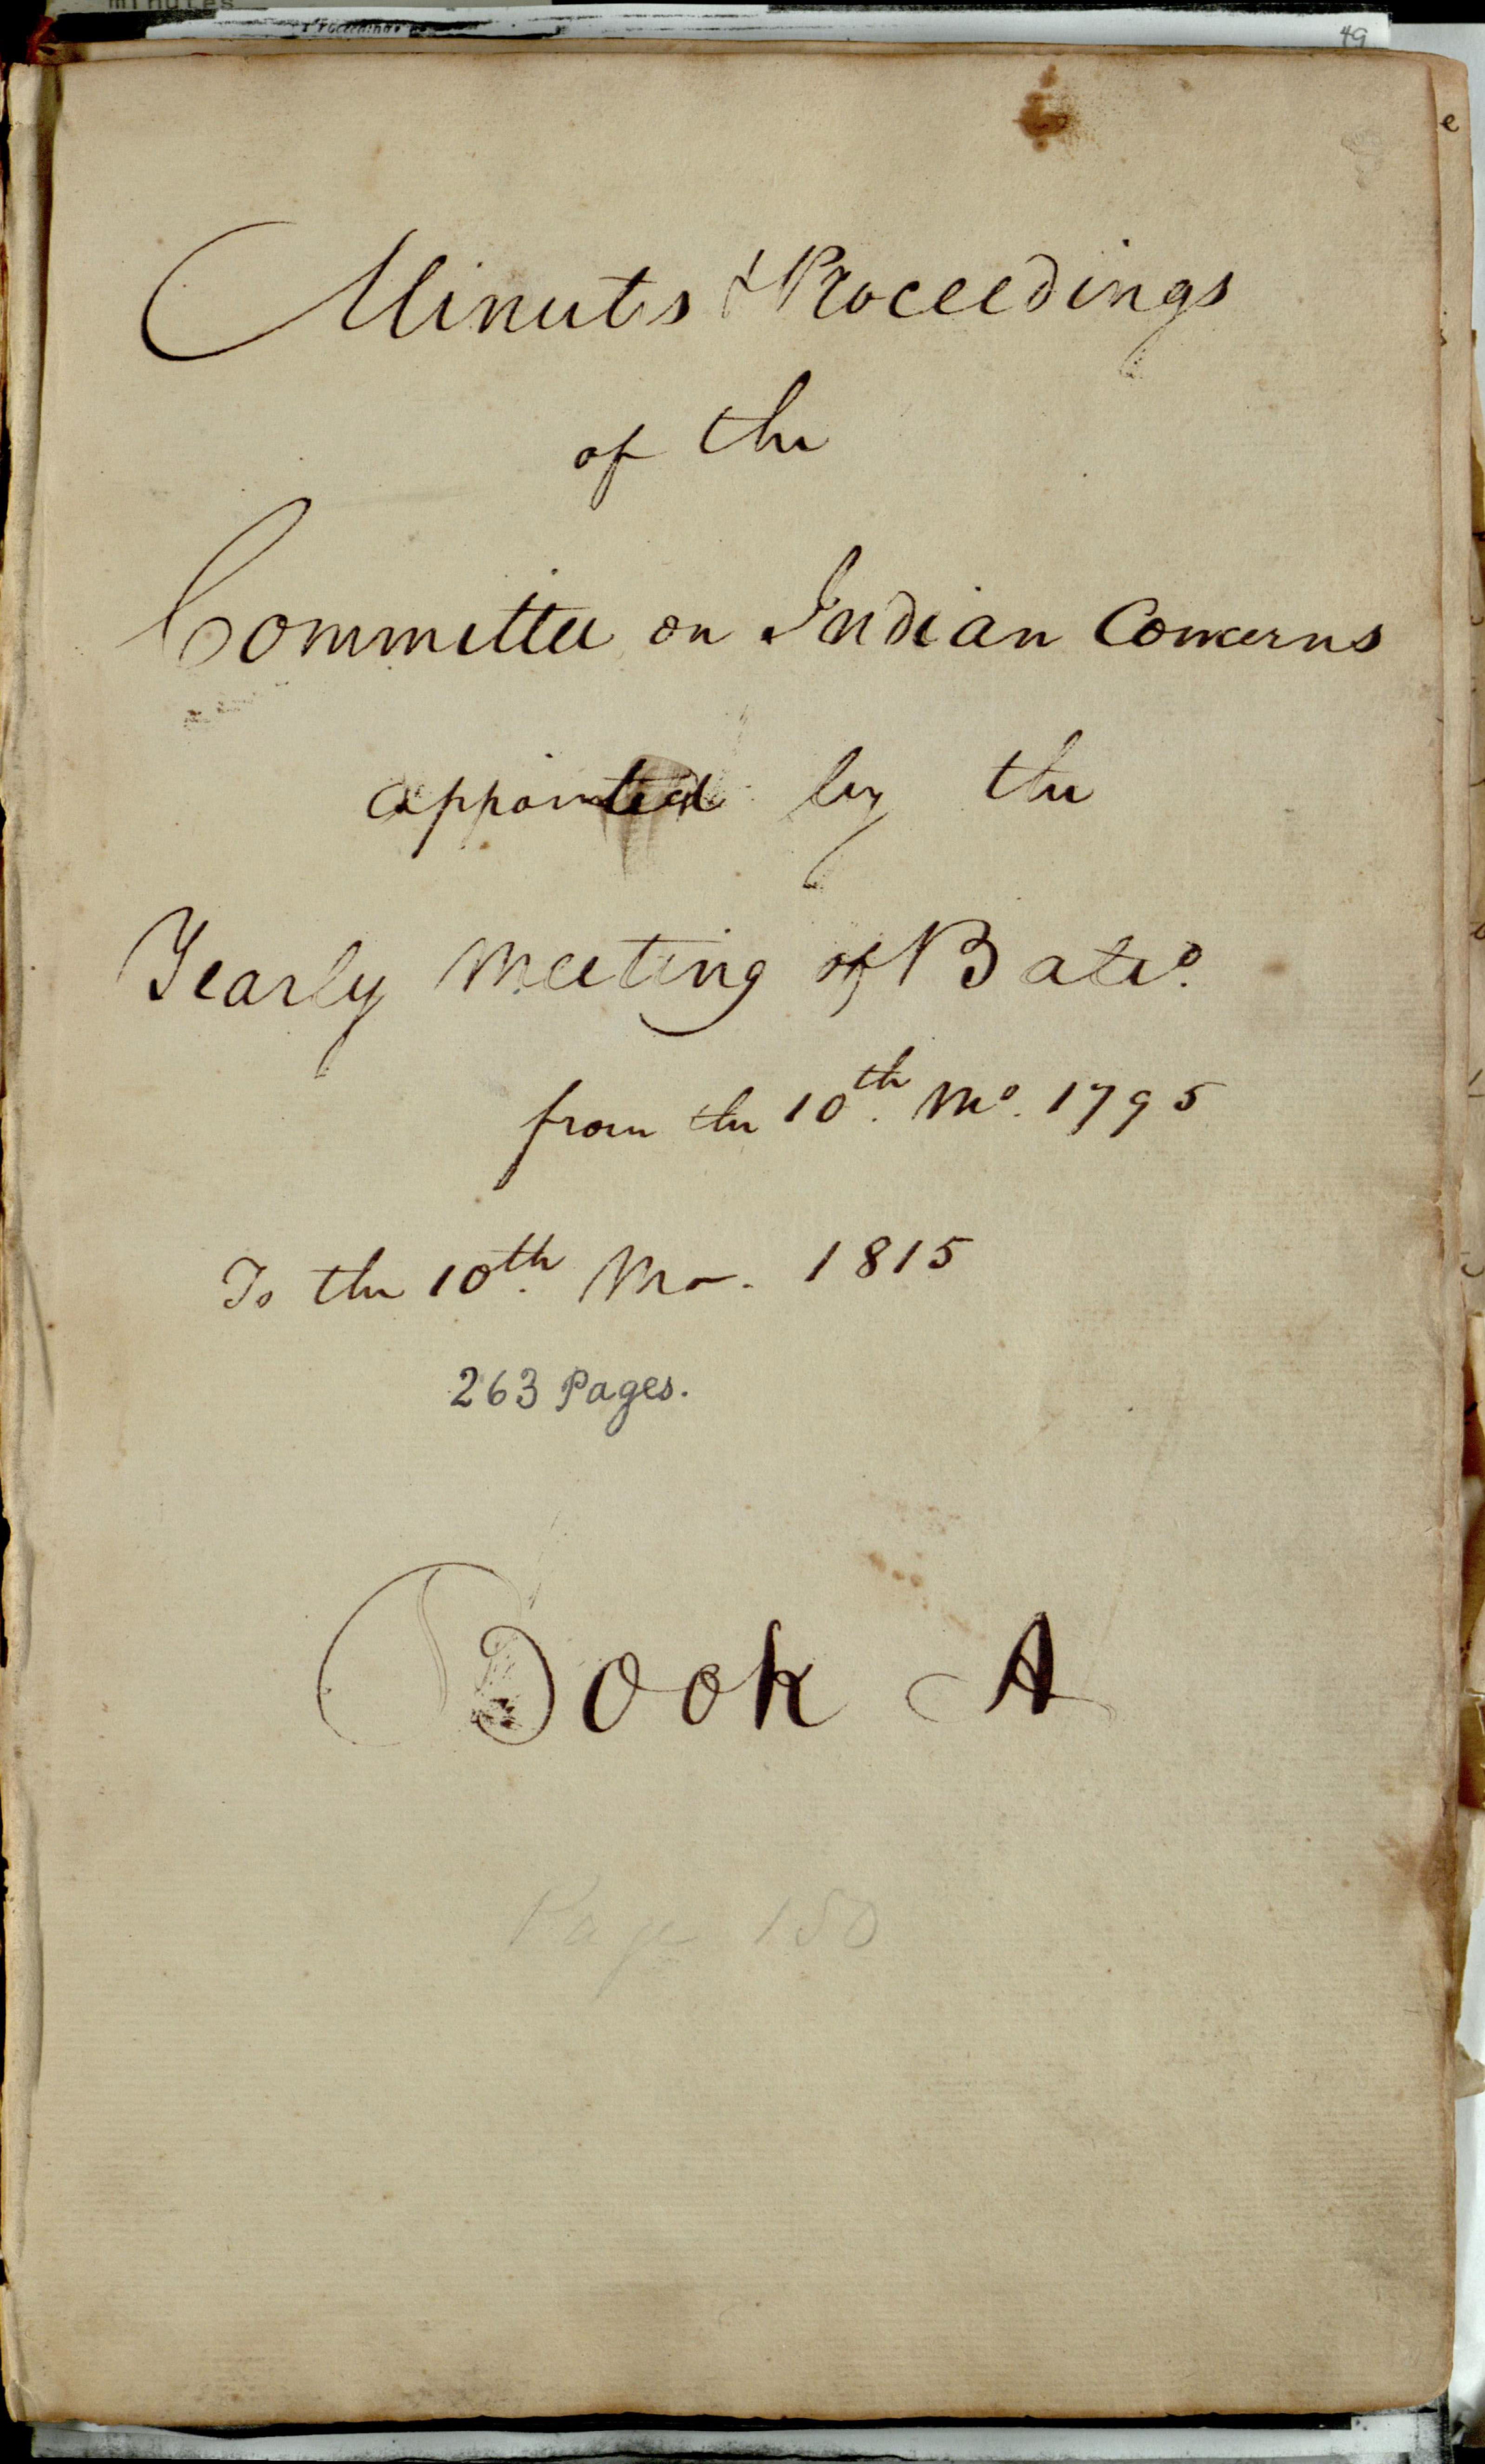 minutes
Proceedings
49
Minutes & Proceedings
of the
Committee on Indian Concerns
appointed by the
Yearly Meeting of Balto.
from the 10th. Mo. 1795
To the 10th. Mo. 1815
263 Pages.
Book A
Page 150